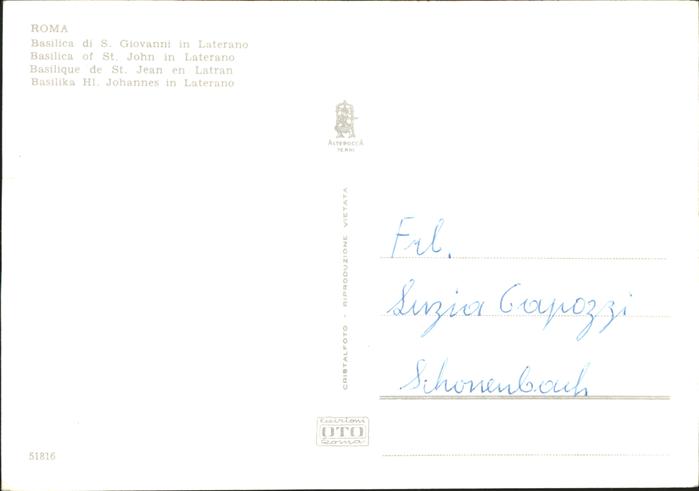 ROMA
Basilica di S. Giovanni in Laterano
Basilica of St. John in Laterano
Basilique de St. Jean en Latran
Basilika Hl. Johannes in Laterano
ALTEROCCA
TERNI
CRISTALFOTO - RIPRODUZIONE VIETATA
Frl.
Luzia Capozzi
Schonenbach
Edizioni
OTO
Roma
51816